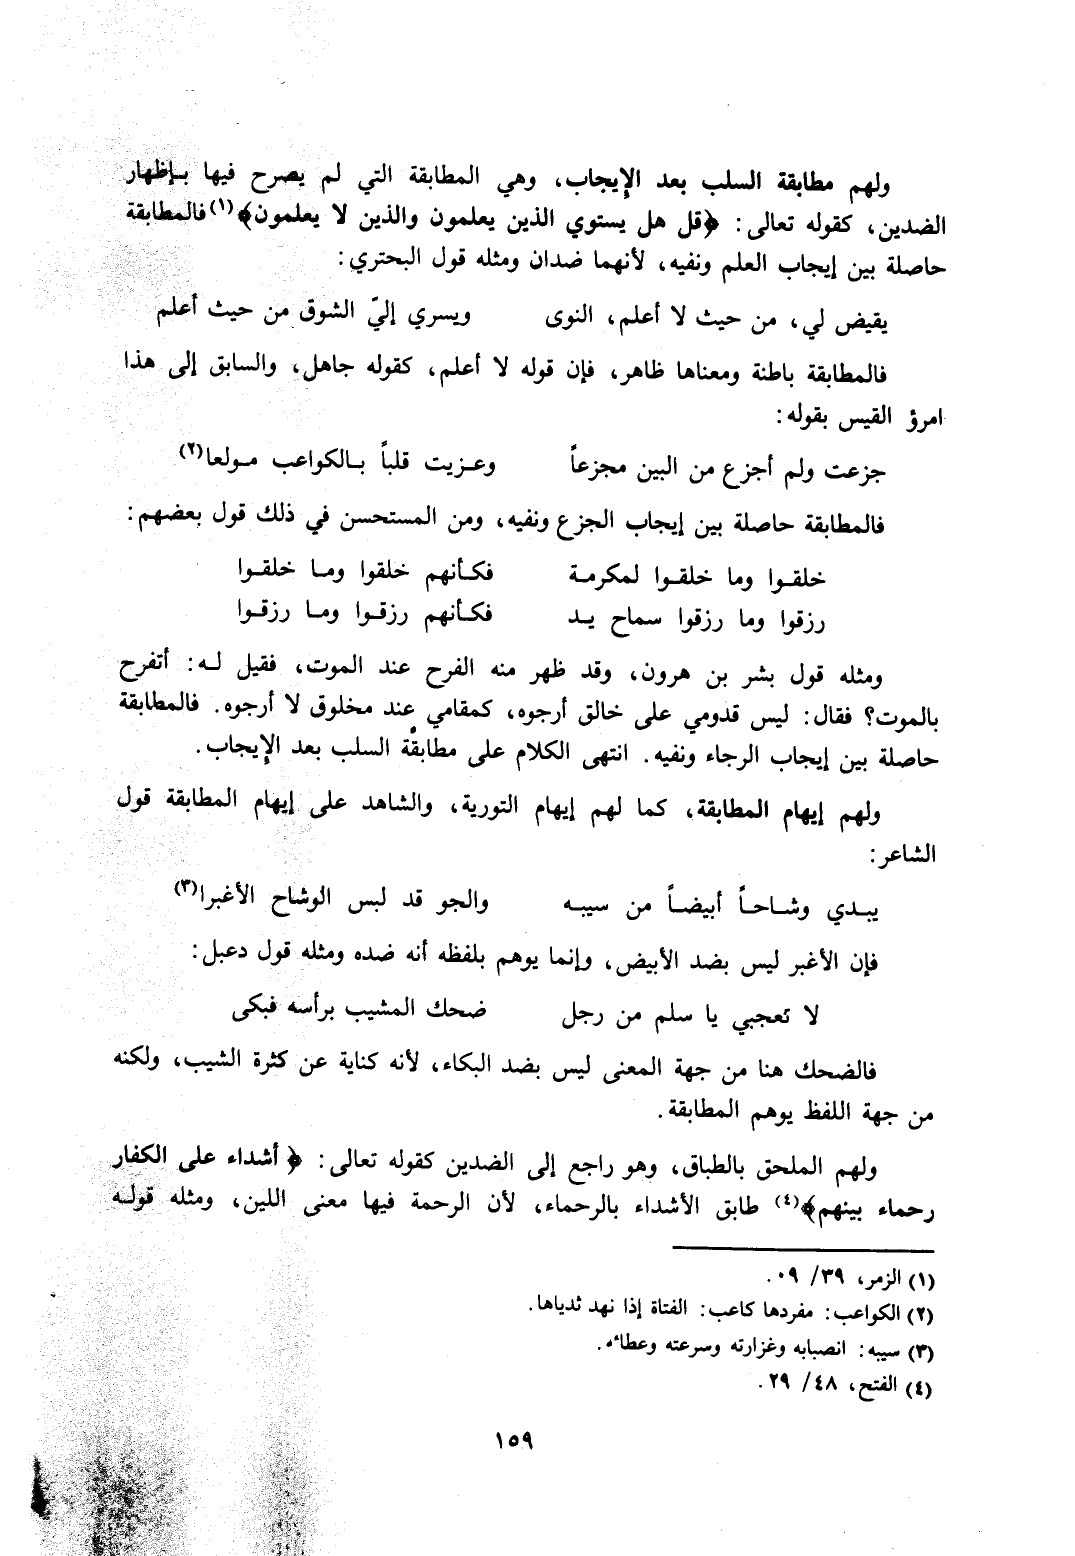 ولهم مطابقة السلب بعد الإيجاب، وهي المطابقة التي لم يصرح فيها بـإظهار
الضدين، كقوله تعالى: ﴿قل هل يستوي الذين يعلمون والذين لا يعلمون﴾(١) فالمطابقة
حاصلة بين إيجاب العلم ونفيه، لأنهما ضدان ومثله قول البحتري:
يقيض لي، من حيث لا أعلم، النوى ويسري إليّ الشوق من حيث أعلم
فالمطابقة باطنة ومعناها ظاهر، فإن قوله لا أعلم، كقوله جاهل، والسابق إلى هذا
امرؤ القيس بقوله:
جزعت ولم أجزع من البين مجزعاً وعـزيت قلباً بـالكواعب مـولعا(٢)
فالمطابقة حاصلة بين إيجاب الجزع ونفيه، ومن المستحسن في ذلك قول بعضهم:
خلقـوا وما خلقـوا لمكرمـة فكـأنهم خلقوا ومـا خلقـوا
رزقوا وما رزقوا سماح يـد فكـأنهم رزقـوا ومـا رزقـوا
ومثله قول بشر بن هرون، وقد ظهر منه الفرح عند الموت، فقيل لـه: أتفرح
بالموت؟ فقال: ليس قدومي على خالق أرجوه، كمقامي عند مخلوق لا أرجوه. فالمطابقة
حاصلة بين إيجاب الرجاء ونفيه. انتهى الكلام على مطابقة السلب بعد الإيجاب.
ولهم إيهام المطابقة، كما لهم إيهام التورية، والشاهد على إيهام المطابقة قول
الشاعر:
يبـدي وشـاحـاً أبيضـاً من سيبـه والجو قد لبس الوشاح الأغبرا(٣)
فإن الأغبر ليس بضد الأبيض، وإنما يوهم بلفظه أنه ضده ومثله قول دعبل:
لا تعجبي يا سلم من رجل ضحك المشيب برأسه فبكى
فالضحك هنا من جهة المعنى ليس بضد البكاء، لأنه كناية عن كثرة الشيب، ولكنه
من جهة اللفظ يوهم المطابقة.
ولهم الملحق بالطباق، وهو راجع إلى الضدين كقوله تعالى: ﴿أشداء على الكفار
رحماء بينهم﴾(٤) طابق الأشداء بالرحماء، لأن الرحمة فيها معنى اللين، ومثله قولـه
(١) الزمر، ٣٩/ ٠٩.
(٢) الكواعب: مفردها كاعب: الفتاة إذا نهد ثدياها.
(٣) سيبه: انصبابه وغزارته وسرعته وعطائه.
(٤) الفتح، ٤٨/ ٢٩.
١٥٩